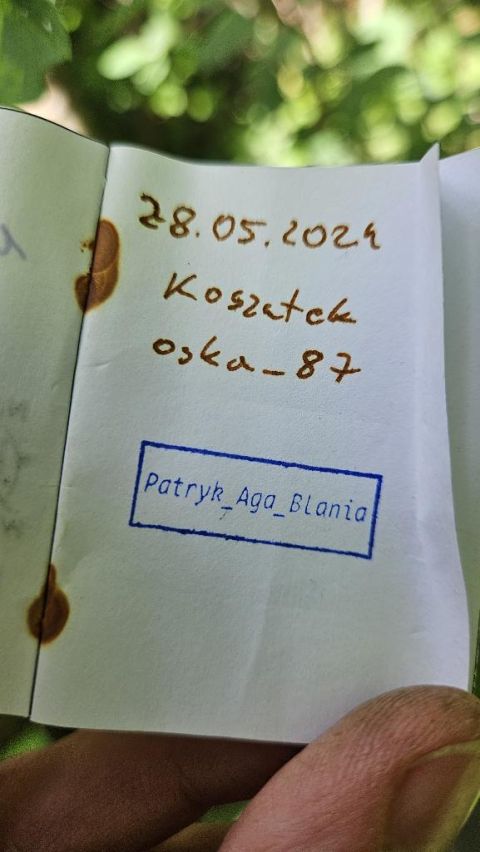 28.05.2024
Koszatek
oska_87
Patryk_Aga_Blania